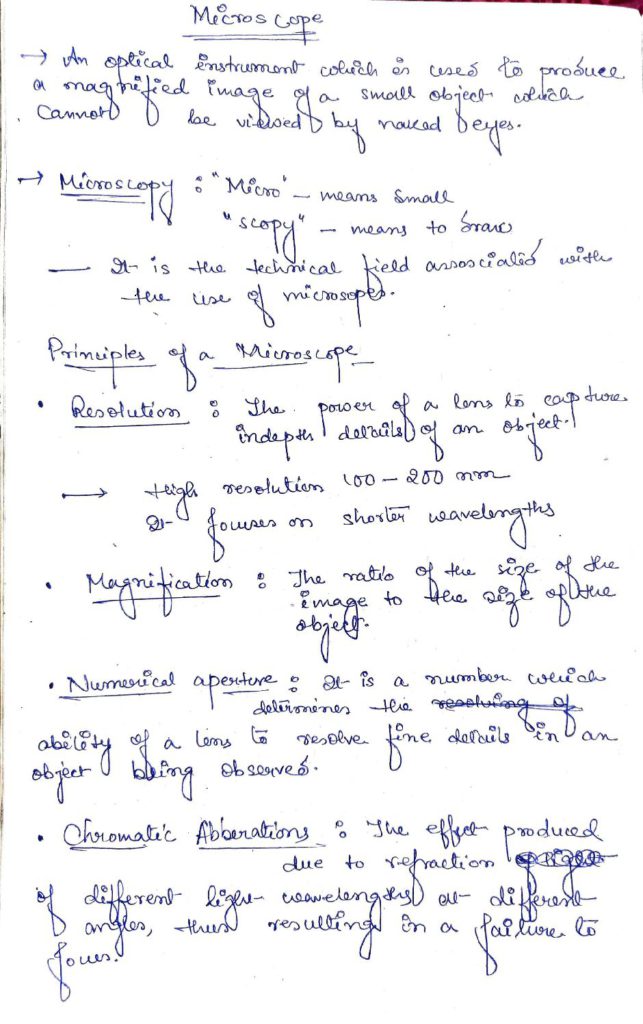 Microscope
→ An optical instrument which is used to produce
a magnified image of a small object which
cannot be viewed by naked eyes.
→ Microscopy : "Micro" - means small
"scopy" - means to
— It is the technical field associated with
the use of microsopes.
Principles of a Microscope
• Resolution : The power of a lens to capture
indepth details of an object.
→ High resolution 100 - 200 nm
It focuses on shorter wavelengths
• Magnification : The ratio of the size of the
image to the size of the
object.
• Numerical aperture : It is a number which
determines the resolving of
ability of a lens to resolve fine details in an
object being observed.
• Chromatic Abberations : The effect produced
due to refraction
of different light wavelengths at different
angles, thus resulting in a failure to
focus.